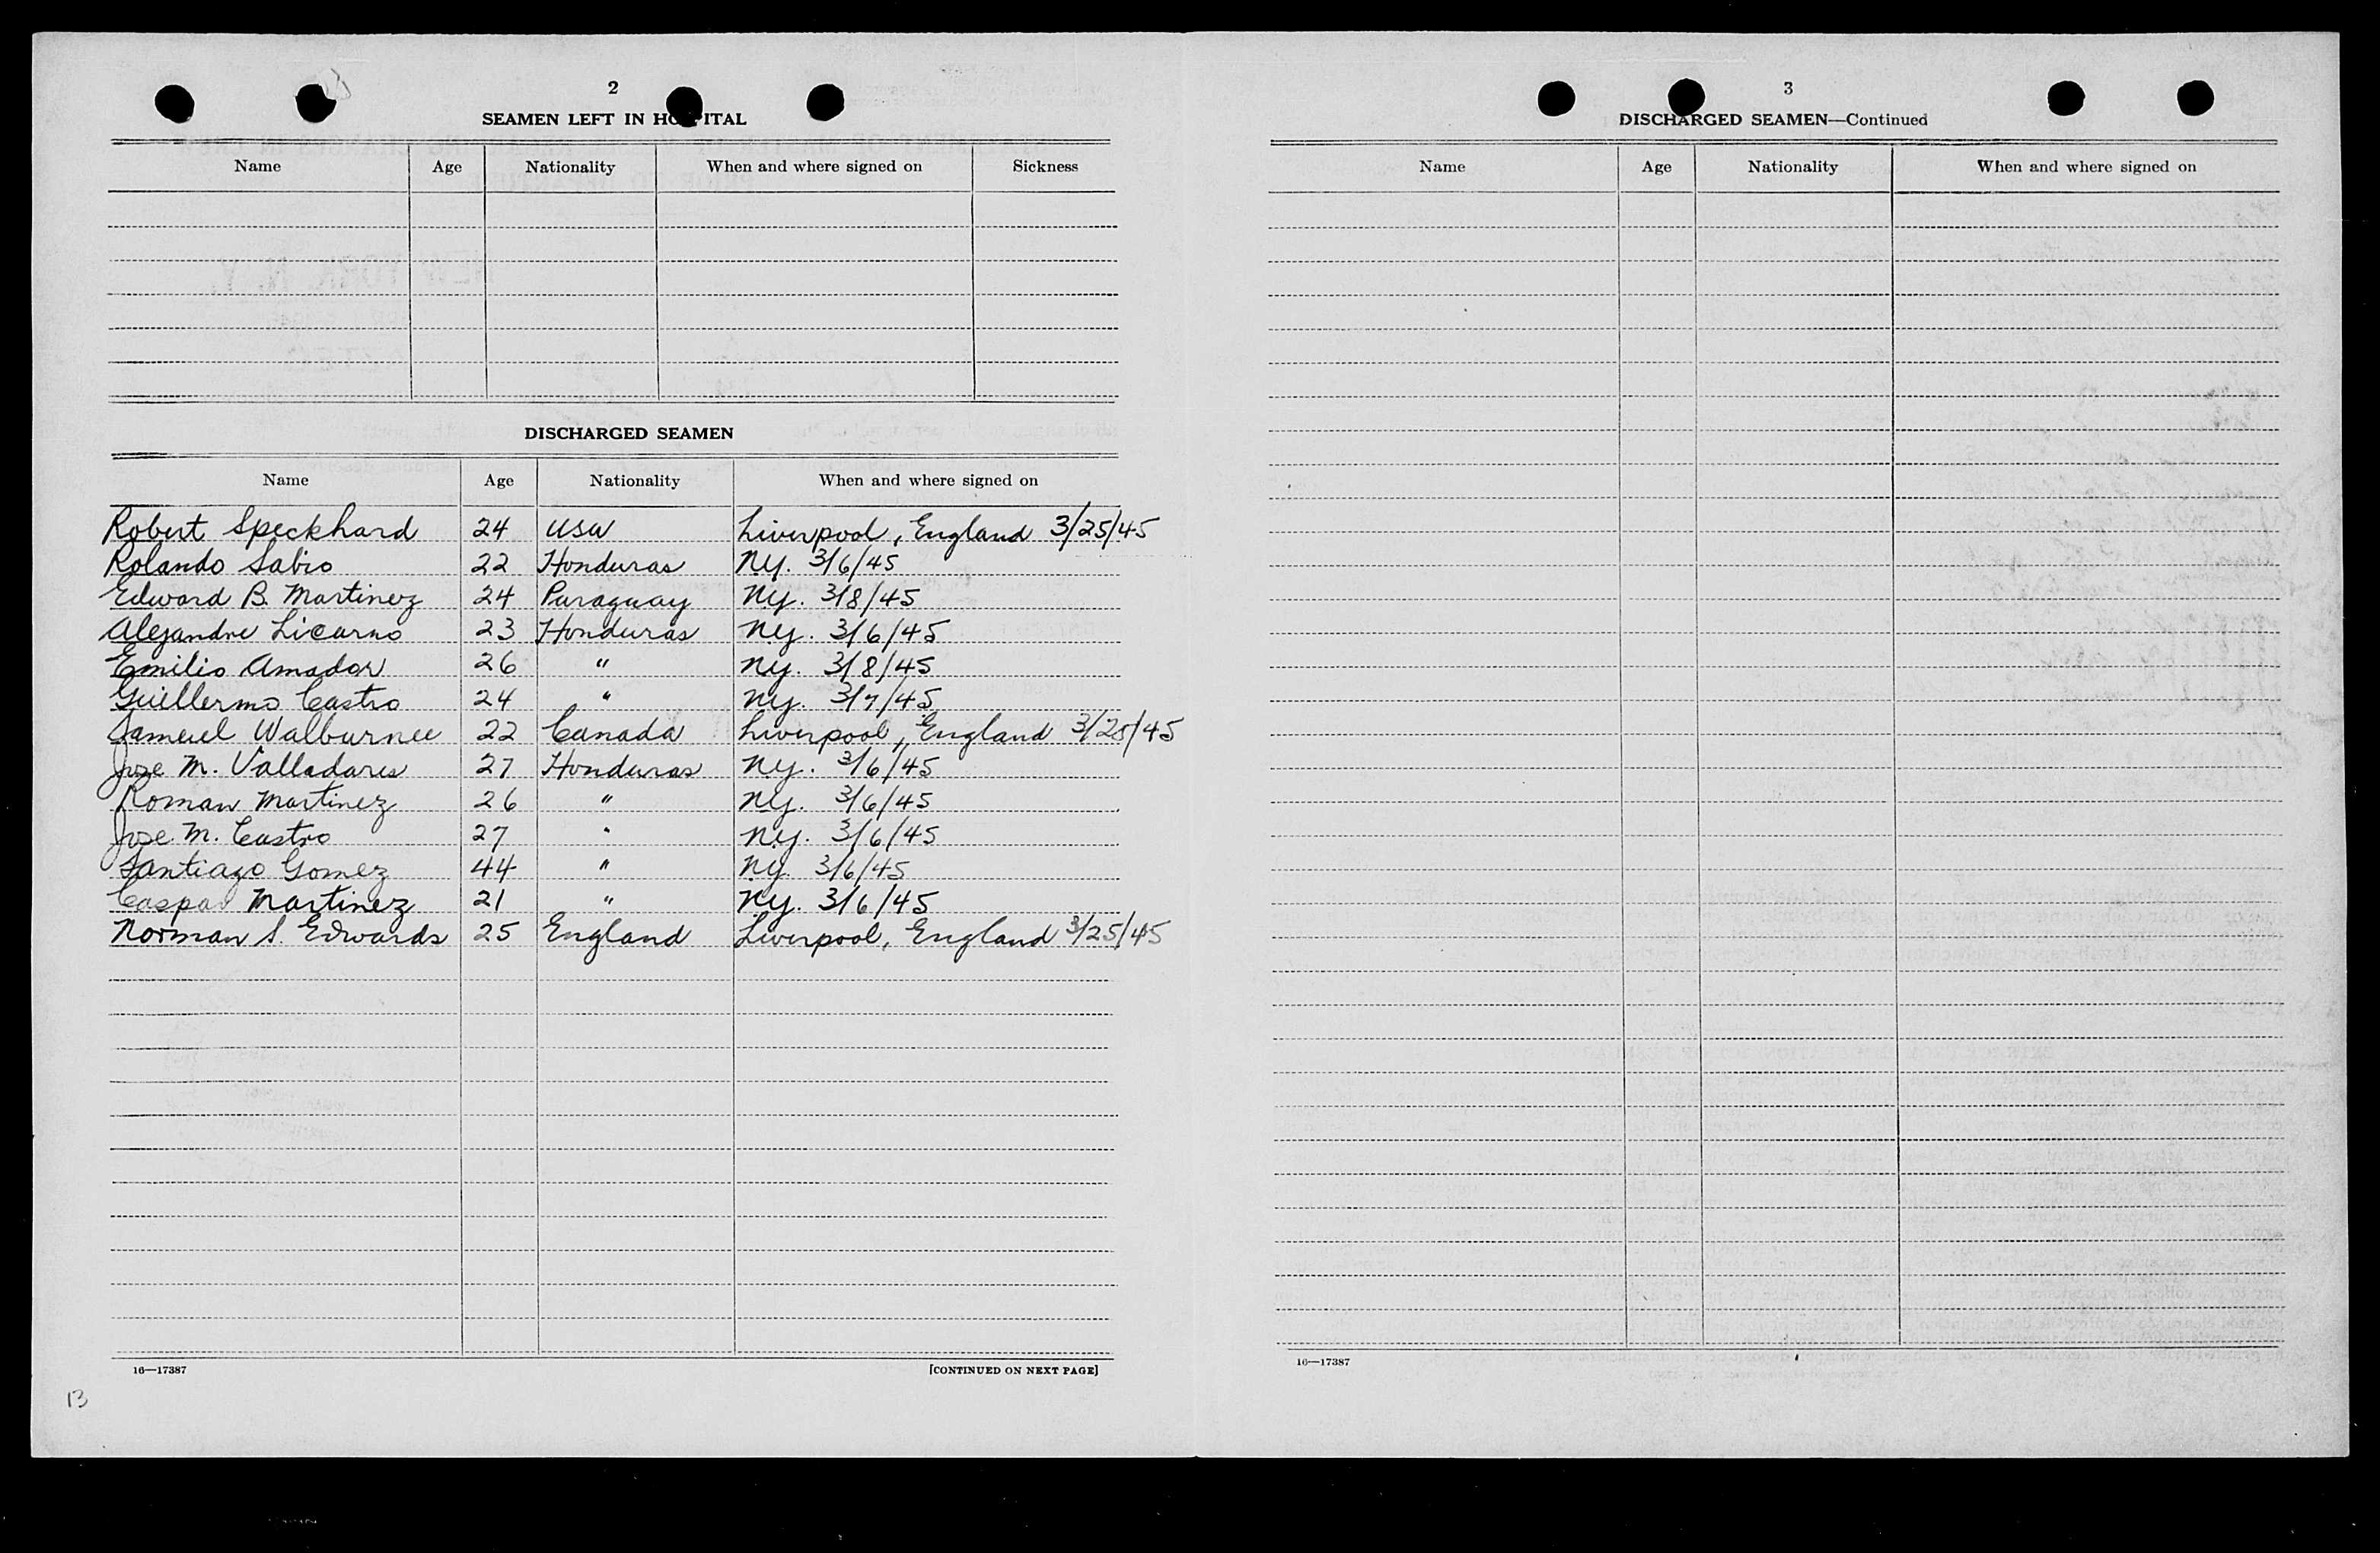 2
SEAMEN LEFT IN HOSPITAL
Name Age Nationality When and where signed on Sickness
DISCHARGED SEAMEN
Name Age Nationality When and where signed on
Robert Speckhard 24 USA Liverpool, England 3/25/45
Rolando Sabio 22 Honduras NY. 3/6/45
Edward B. Martinez 24 Paraguay NY. 3/8/45
Alejandro 23 Honduras NY. 3/6/45
Emilio Amador 26 " NY. 3/8/45
Guillermo Castro 24 " NY. 3/7/45
Samuel Walburnee 22 Canada Liverpool, England 3/25/45
Jose M. Valladares 27 Honduras NY. 3/6/45
Roman Martinez 26 " NY. 3/6/45
Jose M. Castro 27 " NY. 3/6/45
Santiago Gomez 44 " NY. 3/6/45
Caspar Martinez 21 " NY. 3/6/45
Norman S. Edwards 25 England Liverpool, England 3/25/45
16—17387 [CONTINUED ON NEXT PAGE]
13
3
DISCHARGED SEAMEN—Continued
Name Age Nationality When and where signed on
16—17387